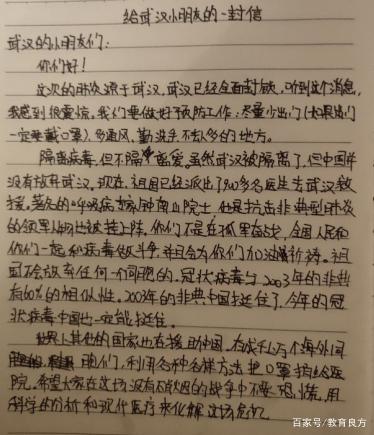 给武汉小朋友的一封信
武汉的小朋友们：
你们好！
这次的肺炎源于武汉，武汉已经全面封锁，听到这个消息，
我感到很震惊。我们要做好预防工作：尽量少出门（如果出门
一定要戴口罩），多通风，勤洗手，不去人多的地方。
隔离病毒，但不隔离爱。虽然武汉被隔离了，但中国并
没有放弃武汉。现在，祖国已经派出了多名医生去武汉救
援。著名的呼吸病专家钟南山院士，他是抗击非典型肺炎
的领军人物也被装上阵。你们不是在孤军奋战，全国人民和
你们一起和病毒做斗争，并且会为你们加油祈祷。祖
国不会放弃任何一个同胞的。冠状病毒与2003年的非典
有60%的相似性。2003年的非典中国挺住了，今年的冠
状病毒中国也一定能挺住。
世界上其他的国家也在援助中国，有成千上万个海外同
胞们，利用各种各样方法把口罩捐给医
院。希望大家在这场没有硝烟的战争中不要恐慌，用
科学的分析和现代医疗来化解这场危机。
百家号/教育良方